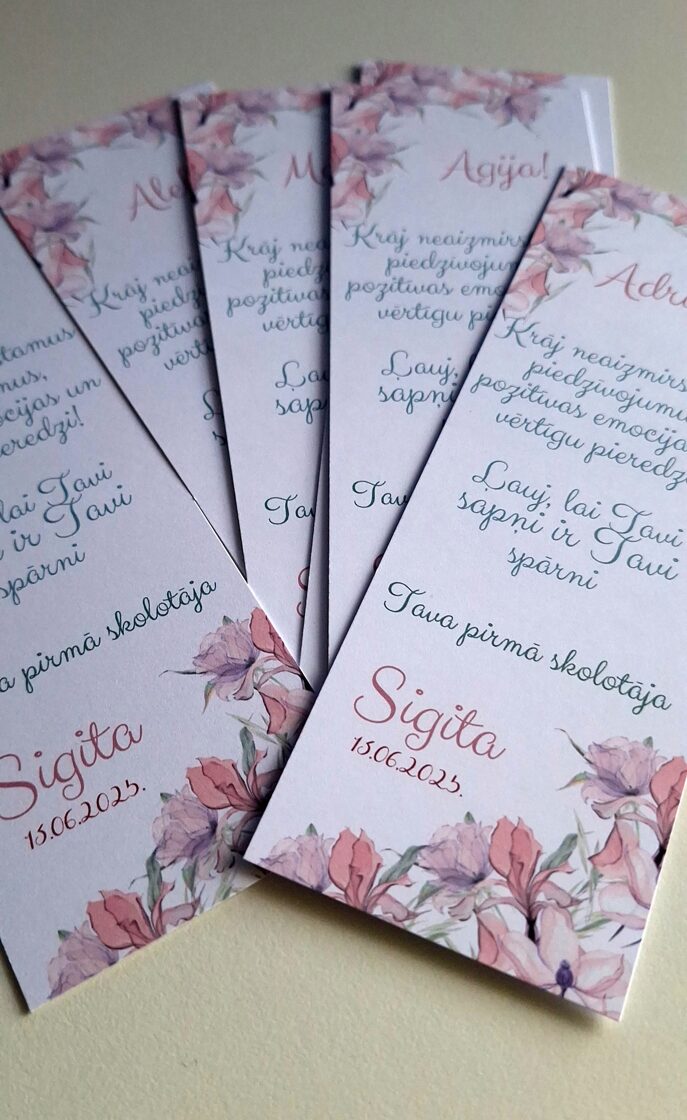 tamus
mus,
ocijas un
eredzi!
lai Tavi
ir Tavi
spārni
a pirmā skolotāja
Sigita
15.06.2025.
Ale
Krāj neai
piedz
pozitīva
vērt
Ļ
M
Krāj nea
piedz
pozitīvas
vērtīg
Ļau
sap
Ta
Agija!
Krāj neaizmirs
piedzīvojum
pozitīvas emo
vērtīgu pi
Ļauj,
sapņi
Tav
Adri
Krāj neaizmirs
piedzīvojumu
pozitīvas emocija
vērtīgu pieredz
Ļauj, lai Tavi
sapņi ir Tavi
spārni
Tava pirmā skolotāja
Sigita
15.06.2025.